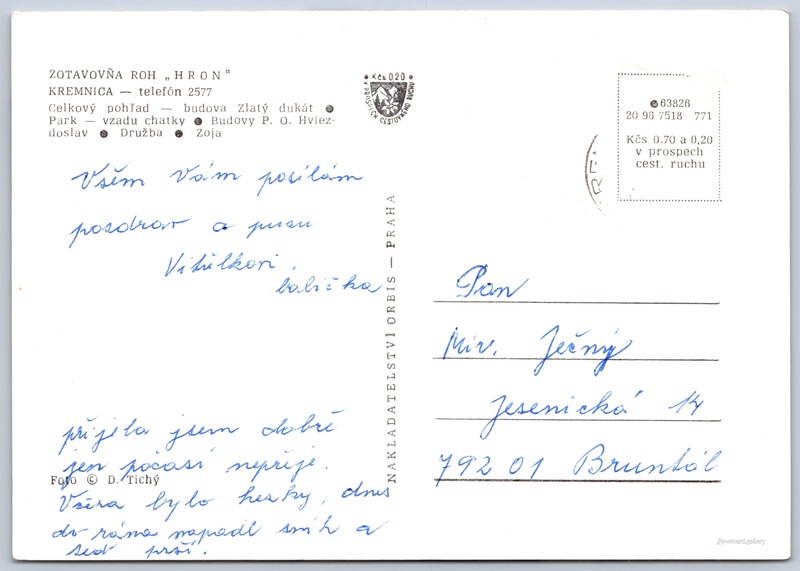 ZOTAVOVŇA ROH „HRON“
KREMNICA — telefón 2577
Celkový pohľad — budova Zlatý dukát ●
Park — vzadu chatky ● Budovy P. O. Hviez-
doslav ● Družba ● Zoja
• Kčs 0.20 •
V PROSPĚCH CESTOVNÉHO RUCHU
63826
20 96 7518 771
Kčs 0.70 a 0,20
v prospech
cest. ruchu
Všem Vám posílám
pozdrav a pusu
Vitúlkovi
babička
přijela jsem dobře
jen počasí nepřeje.
Včera bylo hezky, dnes
do rána napadl sníh a
teď prší.
Foto © D. Tichý
NAKLADATELSTVÍ ORBIS — PRAHA
Pan
Mir. Ječný
Jesenická 14
792 01 Bruntál
@postcard.gallery